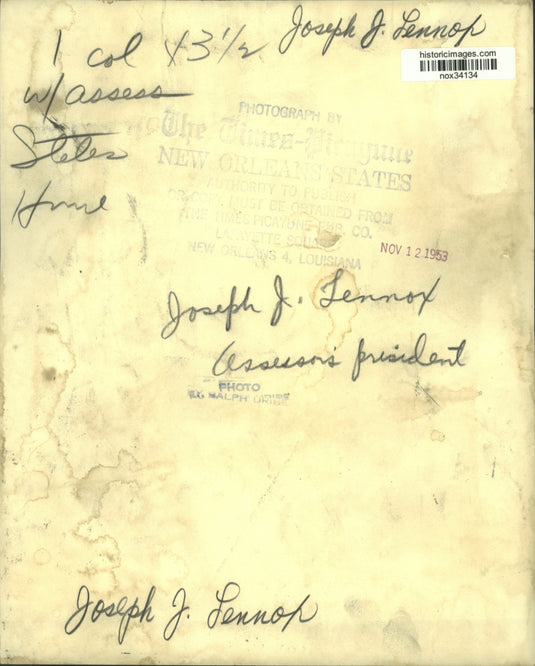 Joseph J. Lennox
1 col x 3 1/2
historicimages.com
nox34134
w/ assess
States
Home
PHOTOGRAPH BY
The Times-Picayune
NEW ORLEANS STATES
AUTHORITY TO PUBLISH
OR COPY MUST BE OBTAINED FROM
THE TIMES-PICAYUNE PUB. CO.
LAFAYETTE SQUARE
NEW ORLEANS 4, LOUISIANA
NOV 12 1953
Joseph J. Lennox
Assessors president
PHOTO
BY RALPH URIBE
Joseph J. Lennox